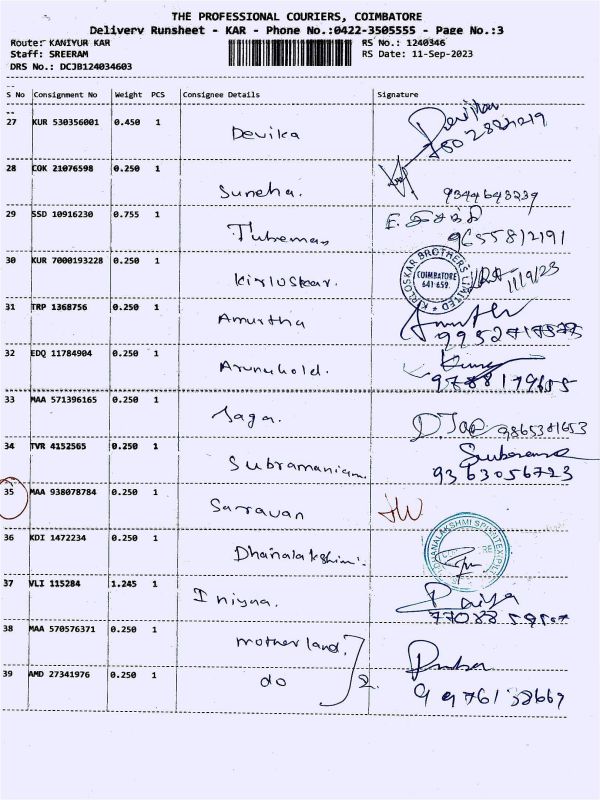 THE PROFESSIONAL COURIERS, COIMBATORE
Delivery Runsheet - KAR - Phone No.:0422-3505555 - Page No.:3
Route: KANIYUR KAR RS No.: 1240346
Staff: SREERAM RS Date: 11-Sep-2023
DRS No.: DCJB124034603
S No Consignment No Weight PCS Consignee Details Signature
27 KUR 530356001 0.450 1 Devika
28 COK 21076598 0.250 1 Suneha. 9344643239
29 SSD 10916230 0.755 1 9655812191
30 KUR 7000193228 0.250 1 Kirloskar. KIRLOSKAR BROTHERS LIMITED COIMBATORE 641-659. 11/9/23
31 TRP 1368756 0.250 1 Amurtha
32 EDQ 11784904 0.250 1
33 MAA 571396165 0.250 1 Saga. 9865381653
34 TVR 4152565 0.250 1 Subramaniam. 9363056723
35 MAA 938078784 0.250 1 Sarravan
36 KDI 1472234 0.250 1 Dhanalakshimi.
37 VLI 115284 1.245 1 Iniyaa.
38 MAA 570576371 0.250 1 Motherland.
39 AMD 27341976 0.250 1 do 2. 9976138669